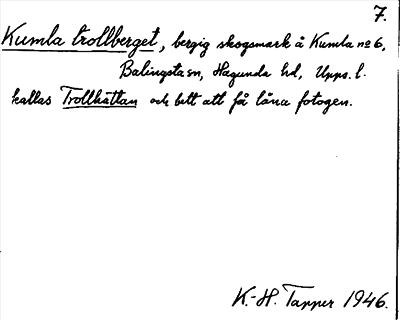 7.
Kumla trollberget, bergig skogsmark å Kumla no 6,
Balingsta sn, Hagunda hd, Upps. l.
kallas Trollhättan och bett att få låna fotogen.
K.-H. Tapper 1946.